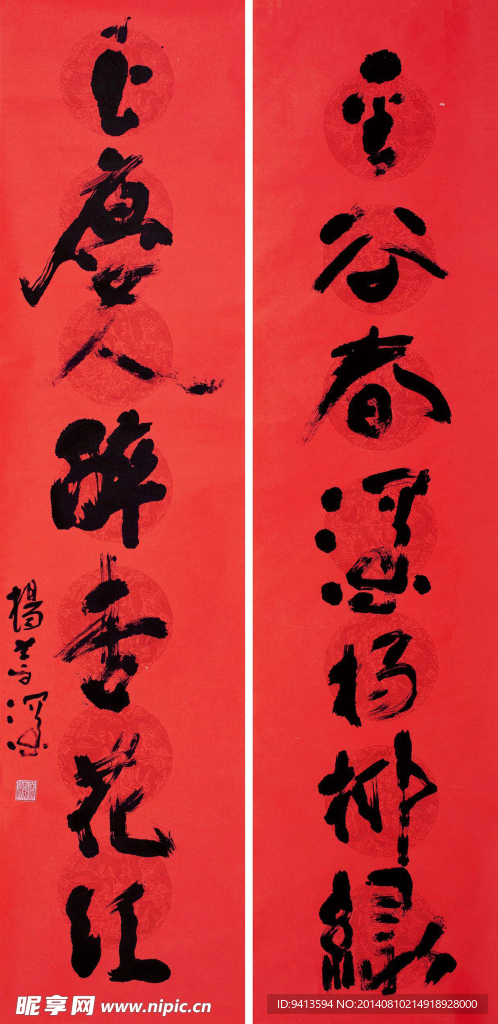 谷春深楊柳綠
人醉杏花紅
楊善深
昵享网 www.nipic.cn
ID:9413594 NO:20140810214918928000